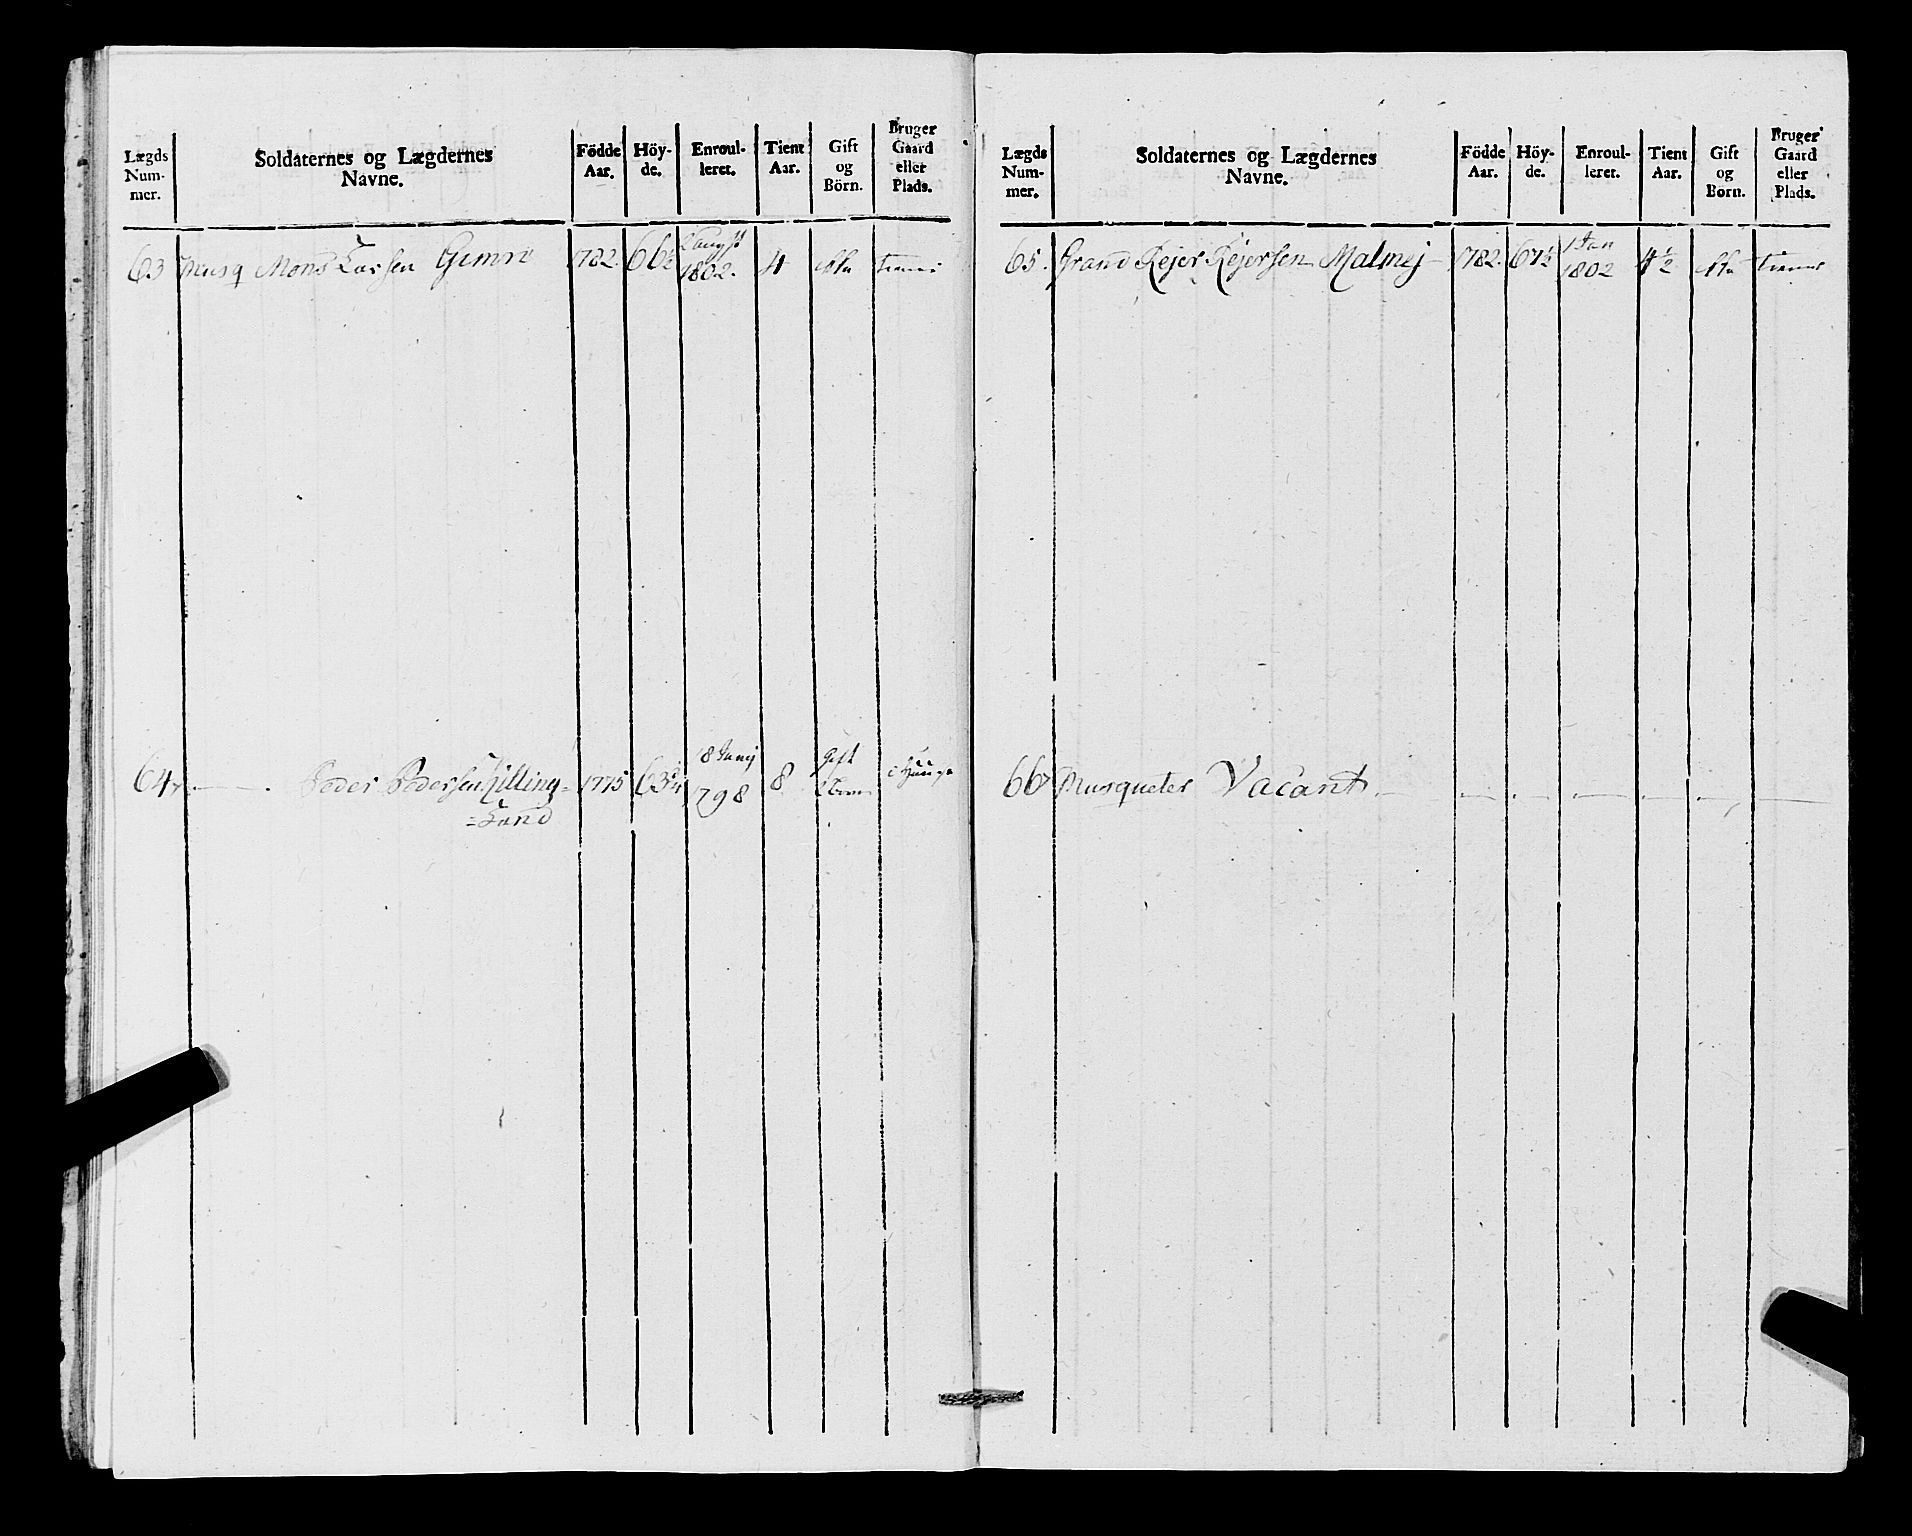 Lægds Num- mer.
Soldaternes og Lægdernes Navne.
Födde Aar.
Höy- de.
Enroul- leret.
Tient Aar.
Gift og Börn.
Bruger Gaard eller Plads.
63 Musq Mons Larsen Gimre 1782. 66½ 1802. 4
64 Peder Pedersen Killing= 1775 63 18 Junij 1798 8 Gift
=Land
Lægds Num- mer.
Soldaternes og Lægdernes Navne.
Födde Aar.
Höy- de.
Enroul- leret.
Tient Aar.
Gift og Børn.
Bruger Gaard eller Plads.
65. Grand Rejer Rejersen Malmej 1782. 67½ 1 Jan 1802 4½
66 Musqueter Vacant